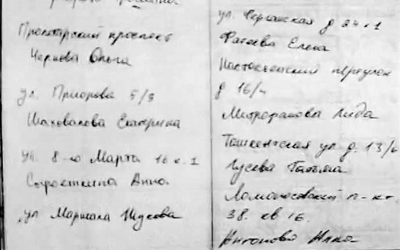 Пролетарский проспект
Чернова Ольга
ул. Приорова 5/3
Шаховалова Екатерина
ул. 8-го Марта 16 к. 1
Сыроежкина Анна
ул Маршала Жукова
ул. Ферганская д 24 к 1
Фатеева Елена
переулок
д 16/4
Митрофанова Лида
Ташкентская ул. д. 13/6
Гусева Татьяна
Ломоносовский п-кт.
38. кв 16.
Антонова Анна